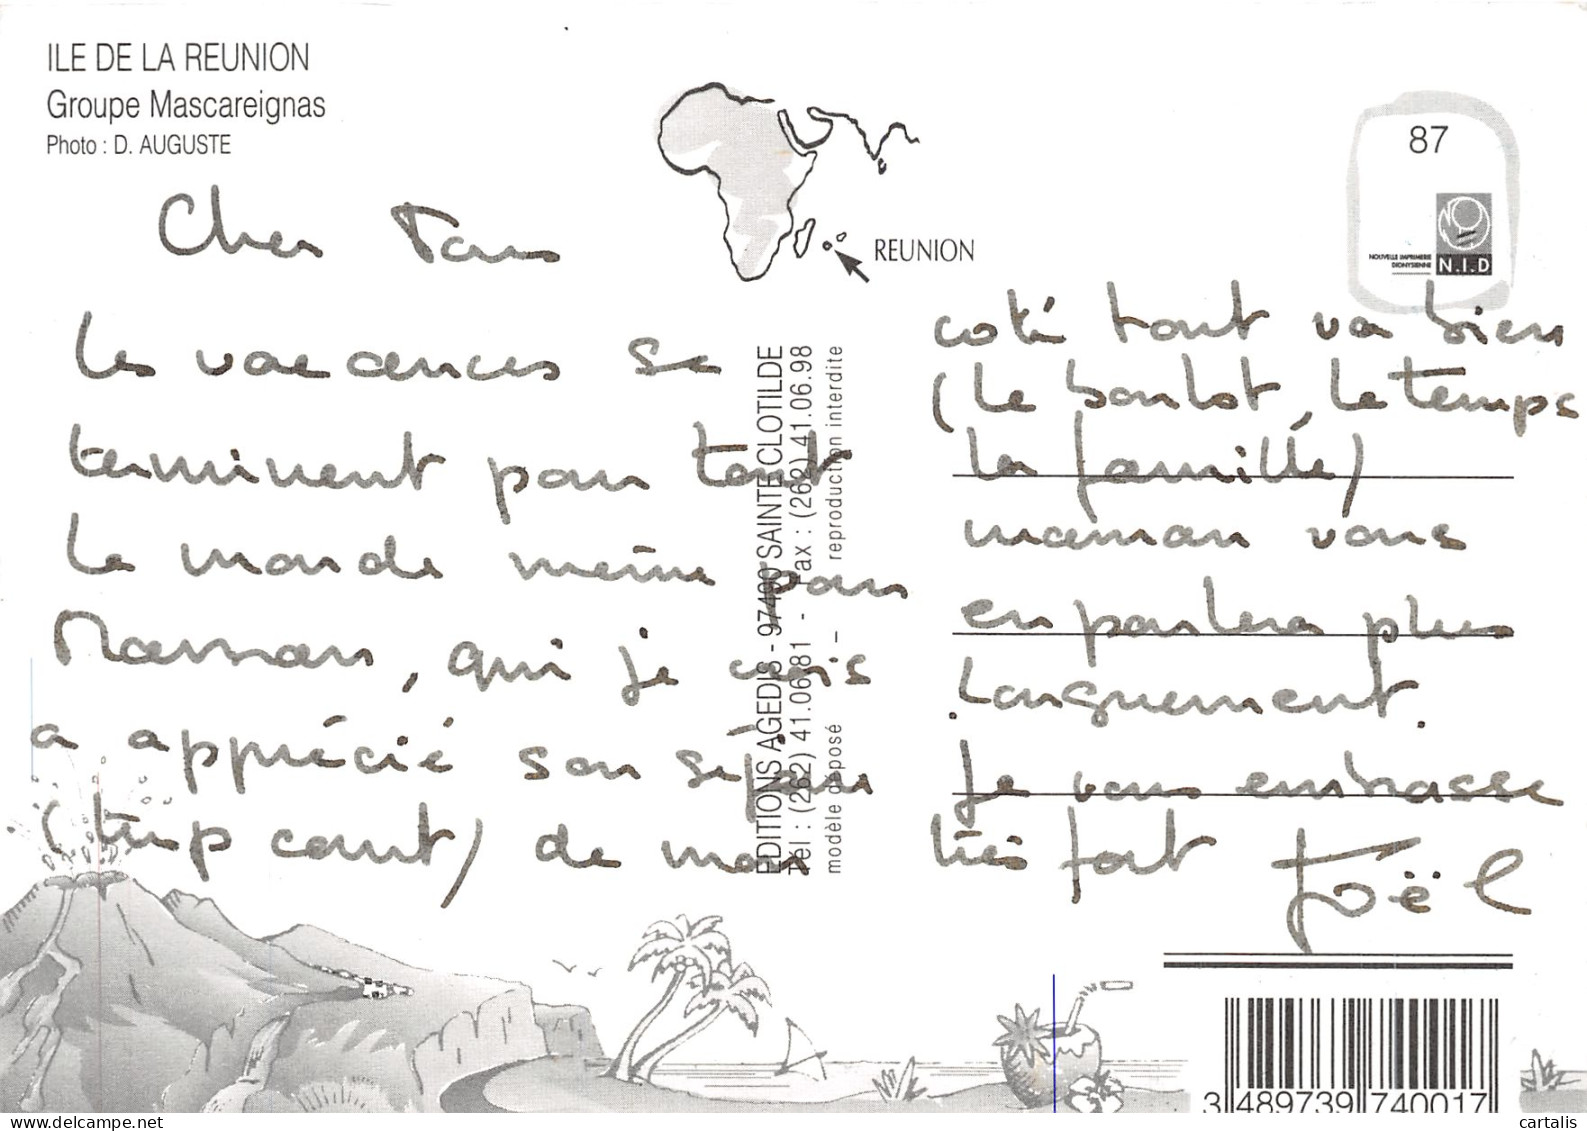 ILE DE LA REUNION
Groupe Mascareignas
Photo : D. AUGUSTE
REUNION
87
NOUVELLE IMPRIMERIE
DIONYSIENNE
N.I.D
Cher Tous
les vacances se
terminent pour tout
le monde même pour
Maman, qui je crois
a apprécié son séjour
(trop court) de mon
coté tout va bien
(le boulot, le temps
la famille)
maman vous
en parlera plus
longuement.
je vous embrasse
très fort Joël
EDITIONS AGEDIS - 97490 SAINTE CLOTILDE
Tél : (262) 41.06.81 - Fax : (262) 41.06.98
modèle déposé – reproduction interdite
3 489739 740017
cartalis